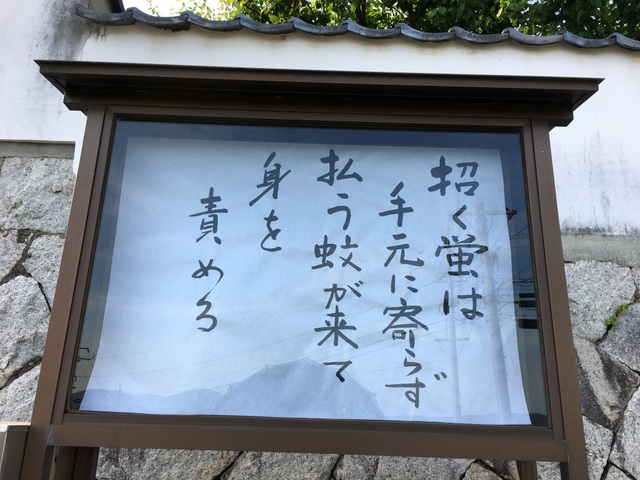 招く蛍は
手元に寄らず
払う蚊が来て
身を
責める